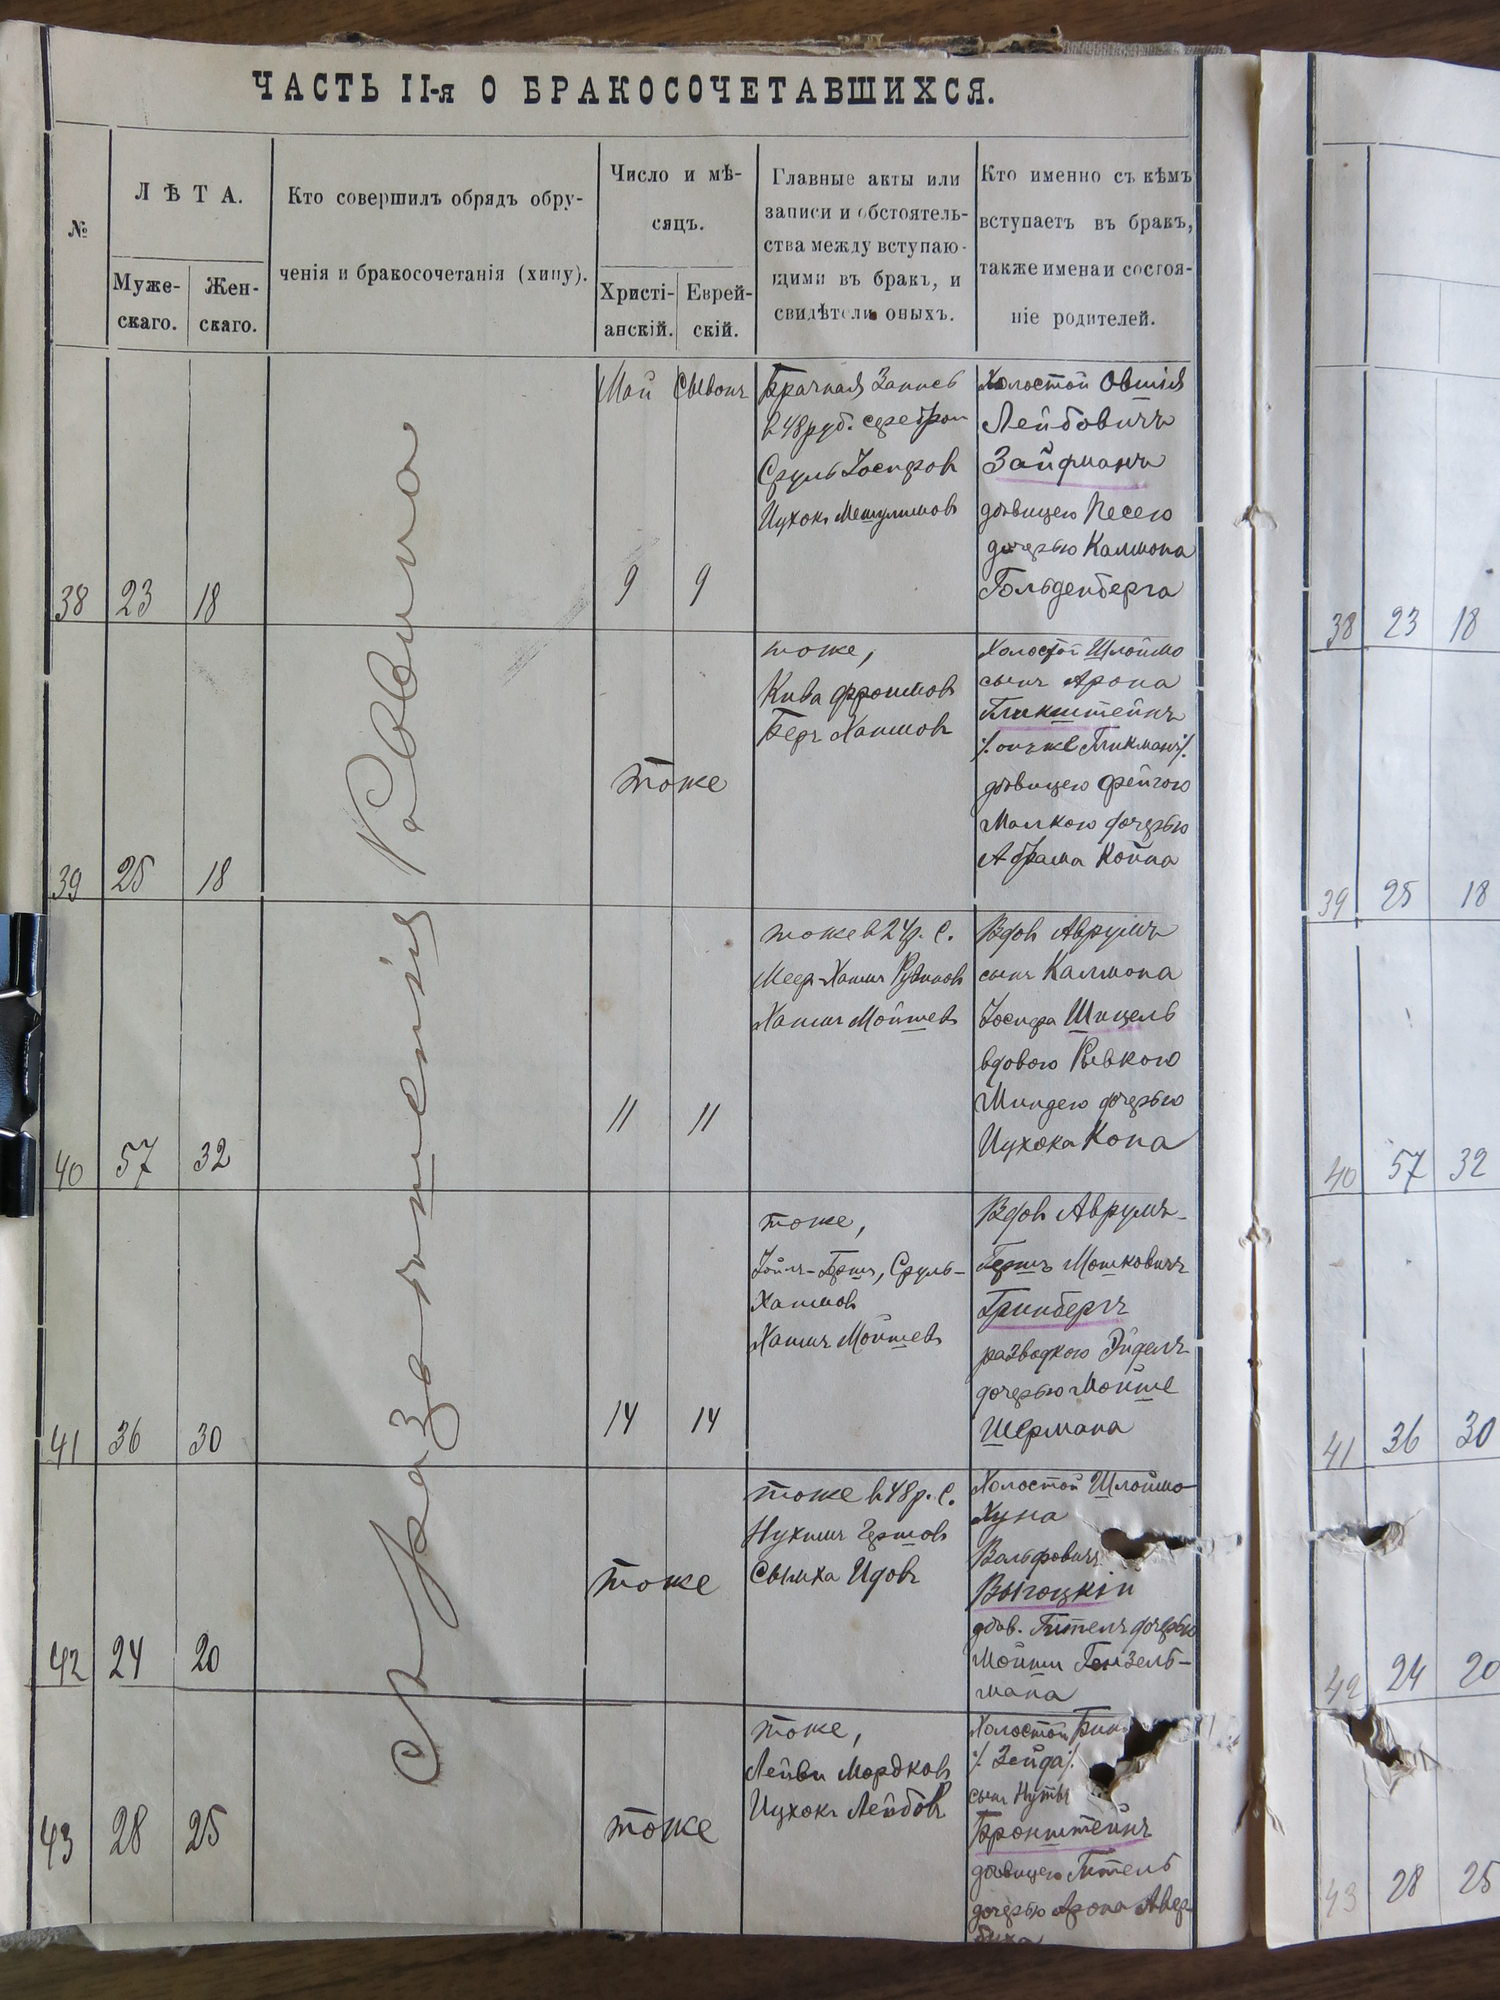 ЧАСТЬ II-я О БРАКОСОЧЕТАВШИХСЯ.
№
ЛѢТА.
Муже-
скаго.
Жен-
скаго.
Кто совершилъ обрядъ обру-
ченія и бракосочетанія (хипу).
Число и мѣ-
сяцъ.
Христі-
анскій.
Еврей-
скій.
Главные акты или
записи и обстоятель-
ства между вступаю-
щими въ бракъ, и
свидѣтели оныхъ.
Кто именно съ кѣмъ
вступаетъ въ бракъ,
также имена и состоя-
ніе родителей.
38
23
18
Май
Сывонъ
9
9
Брачная Запись
в 48 руб. серебром
Сруль Іосифов
Ицхокъ Мешулимовъ
Холостой Овшія
Лейбовичъ
Зайфманъ
дѣвицею Песею
дочерью Калмона
Гольденберга
39
25
18
тоже
тоже,
Кива Фроимовъ
Беръ Хаимовъ
Холостой Шлоймо
сынъ Арона
Гликштейнъ
·/. онъ же Гликманъ ·/.
дѣвицею Фейгою
Малкою дочерью
Абрама Койна
40
57
32
11
11
тоже в 24 р. С.
Меер-Хаимъ Рувинов
Хаимъ Мойшев
Вдовъ Аврумъ
сынъ Калмона
Іосифа Шицель
вдовою Рывкою
Миндею дочерью
Ицхока Кона
41
36
30
14
14
тоже,
Іойлъ-Гершъ, Сруль-
Хаимовъ
Хаимъ Мойшевъ
Вдовъ Аврумъ-
Гершъ Мошковичъ
Гринбергъ
разводкою Эйделъ
дочерью Мойше
Шермана
42
24
20
тоже
тоже в 48 р. С.
Нухимъ Гершовъ
Сымха Идовъ
Холостой Шлоймо-
Хуна
Вольфовичъ
Выгоцкій
дѣв. Гителъ дочерью
Мойши Гензель-
мана
43
28
25
тоже
тоже,
Лейви Мордковъ
Ицхокъ Лейбовъ
Холостой
·/. Зейда ·/.
сынъ Нуты
Бронштейнъ
дѣвицею Гитель
дочерью Арона Авер
буха
С разрешенія Раввина
38
23
18
39
25
18
40
57
32
41
36
30
42
24
20
43
28
25